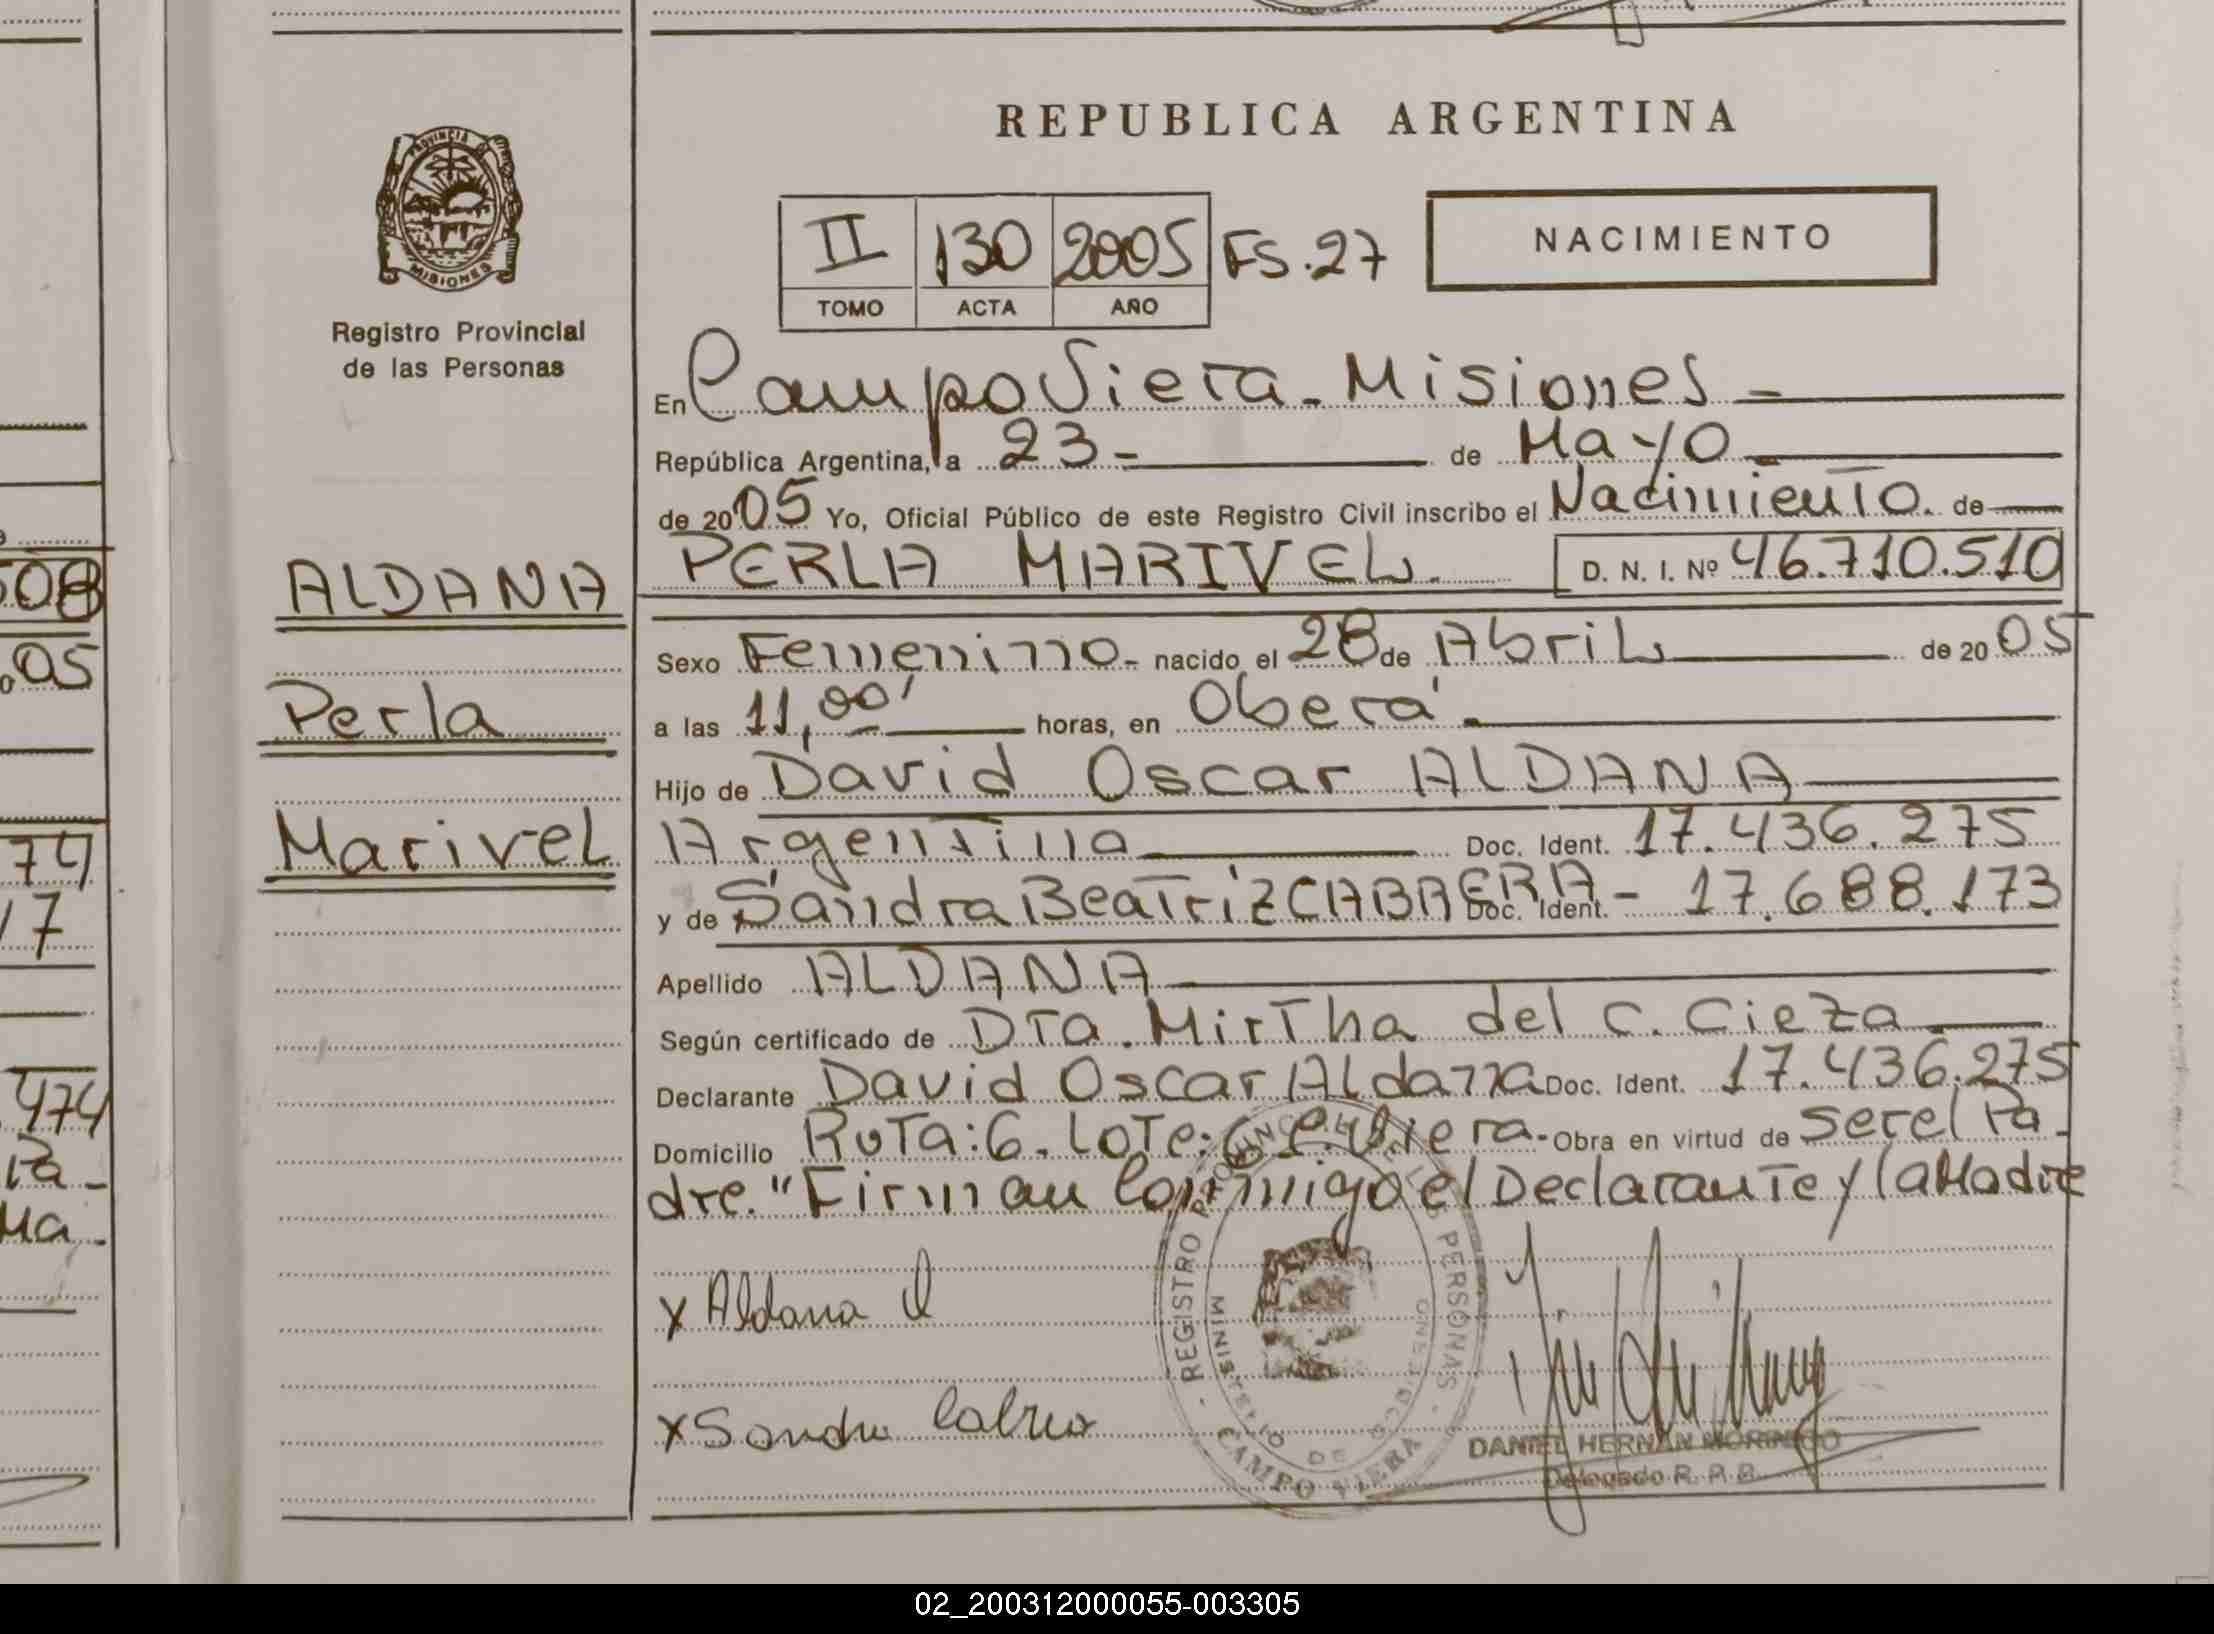 REPUBLICA ARGENTINA
PROVINCIA DE
MISIONES
Registro Provincial
de las Personas
II 130 2005 FS.27
TOMO ACTA AÑO
NACIMIENTO
En Campo Viera - Misiones -
República Argentina, a 23 - de Mayo -
de 2005 Yo, Oficial Público de este Registro Civil inscribo el Nacimiento. de
PERLA MARIVEL. D. N. I. Nº 46.710.510
ALDANA
Perla
Marivel
Sexo Femenino - nacido el 28 de Abril de 2005
a las 11,00' horas, en Oberá -
Hijo de David Oscar ALDANA
Argentina Doc. Ident. 17.436.275
y de Sandra Beatriz CABRERA Doc. Ident. - 17.688.173
Apellido ALDANA
Según certificado de Dra. Mirtha del C. Cieza -
Declarante David Oscar Aldana Doc. Ident. 17.436.275
Domicilio Ruta: 6. Lote: 6 C. Viera - Obra en virtud de ser el Pa-
dre. "Firman Conmigo el Declarante y la Madre
x Aldana
x Sandra Cabrera
REGISTRO PROVINCIAL DE LAS PERSONAS
MINISTERIO DE GOBIERNO
CAMPO VIERA
DANIEL HERNAN MORINIGO
Delegado R. P. P.
508
05
74
17
474
Pa -
Ma -
02_200312000055-003305